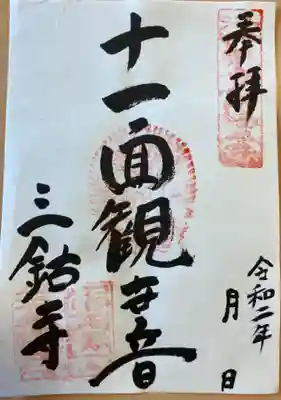 奉拝
十一面観世音
三鈷寺
令和二年
月 日